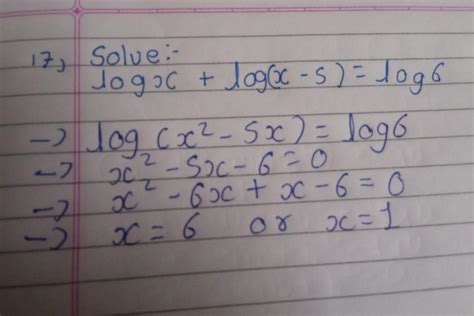 17, Solve:-
log x + log(x - 5) = log 6
→ log (x² - 5x) = log 6
→ x² - 5x - 6 = 0
→ x² - 6x + x - 6 = 0
→ x = 6 or x = 1